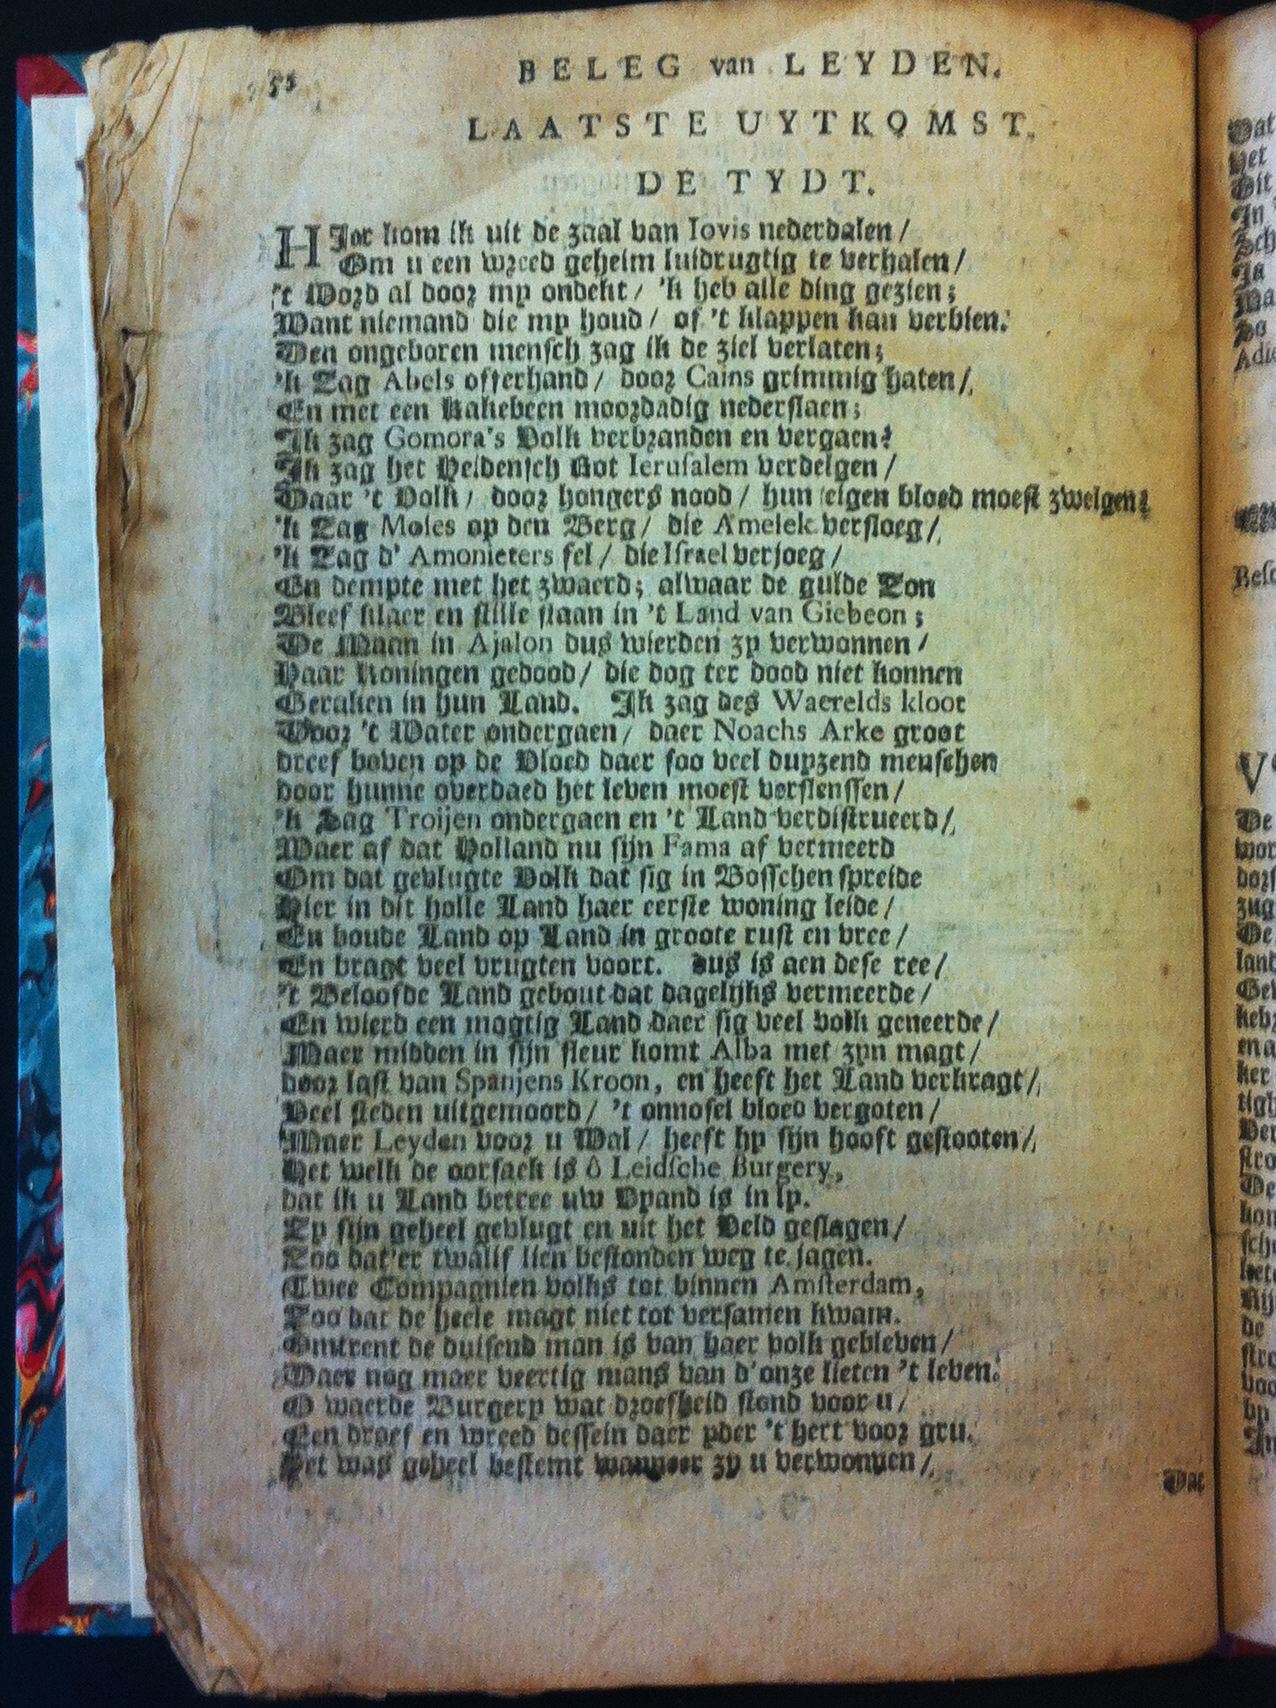 55
BELEG van LEYDEN.
LAATSTE UYTKOMST.
DE TYDT.
HIer kom ik uit de zaal van Iovis nederdalen /
Om u een wreed geheim luidrugtig te verhalen /
't Word al door my ondekt / 'k heb alle ding gezien;
Want niemand die my houd / of 't klappen kan verbien.
Den ongeboren mensch zag ik de ziel verlaten;
'k Zag Abels offerhand / door Cains grimmig haten /
En met een Kakebeen moordadig nederslaen;
Ik zag Gomora's Volk verbranden en vergaen:
Ik zag het Heidensch Rot Ierusalem verdelgen /
Daar 't Volk / door hongers nood / hun eigen bloed moest zwelgen:
'k Zag Moses op den Berg / die Amelek versloeg /
'k Zag d' Amonieters fel / die Israel verjoeg /
En dempte met het zwaerd; alwaar de gulde Zon
Bleef klaer en stille staan in 't Land van Giebeon;
De Maan in Ajalon dus wierden zy verwonnen /
Haar Koningen gedood / die dog ter dood niet konnen
Geraken in hun Land. Ik zag des Waerelds kloot
Door 't Water ondergaen / daer Noachs Arke groot
dreef boven op de Vloed daer soo veel duyzend menschen
door hunne overdaed het leven moest verslenssen /
'k Sag Troijen ondergaen en 't Land verdistrueerd /
Waer af dat Holland nu sijn Fama af vermeerd
Om dat gevlugte Volk dat sig in Bosschen spreide
Hier in dit holle Land haer eerste woning leide /
En boude Land op Land in groote rust en vree /
En bragt veel vrugten voort. dus is aen dese ree /
't Beloofde Land gebout dat dagelijks vermeerde /
En wierd een magtig Land daer sig veel volk geneerde /
Maer midden in sijn fleur komt Alba met zyn magt /
door last van Spanjens Kroon, en heeft het Land verkragt /
Veel steden uitgemoord / 't onnosel bloed vergoten /
Maer Leyden voor u Wal / heeft hy sijn hooft gestooten /
Het welk de oorsack is ô Leidsche Burgery,
dat ik u Land betree uw Vyand is in ly.
Zy sijn geheel gevlugt en uit het Veld geslagen /
Zoo dat'er twalif lien bestonden weg te jagen.
Twee Compagnien volks tot binnen Amsterdam,
Zoo dat de heele magt niet tot versamen kwam.
Omtrent de duisend man is van haer volk gebleven /
Daer nog maer veertig mans van d'onze lieten 't leven:
O waerde Burgery wat droefheid stond voor u /
Een droef en wreed dessein daer yder 't hert voor gru.
Het was geheel bestemt wanneer zy u verwonnen /
Dat